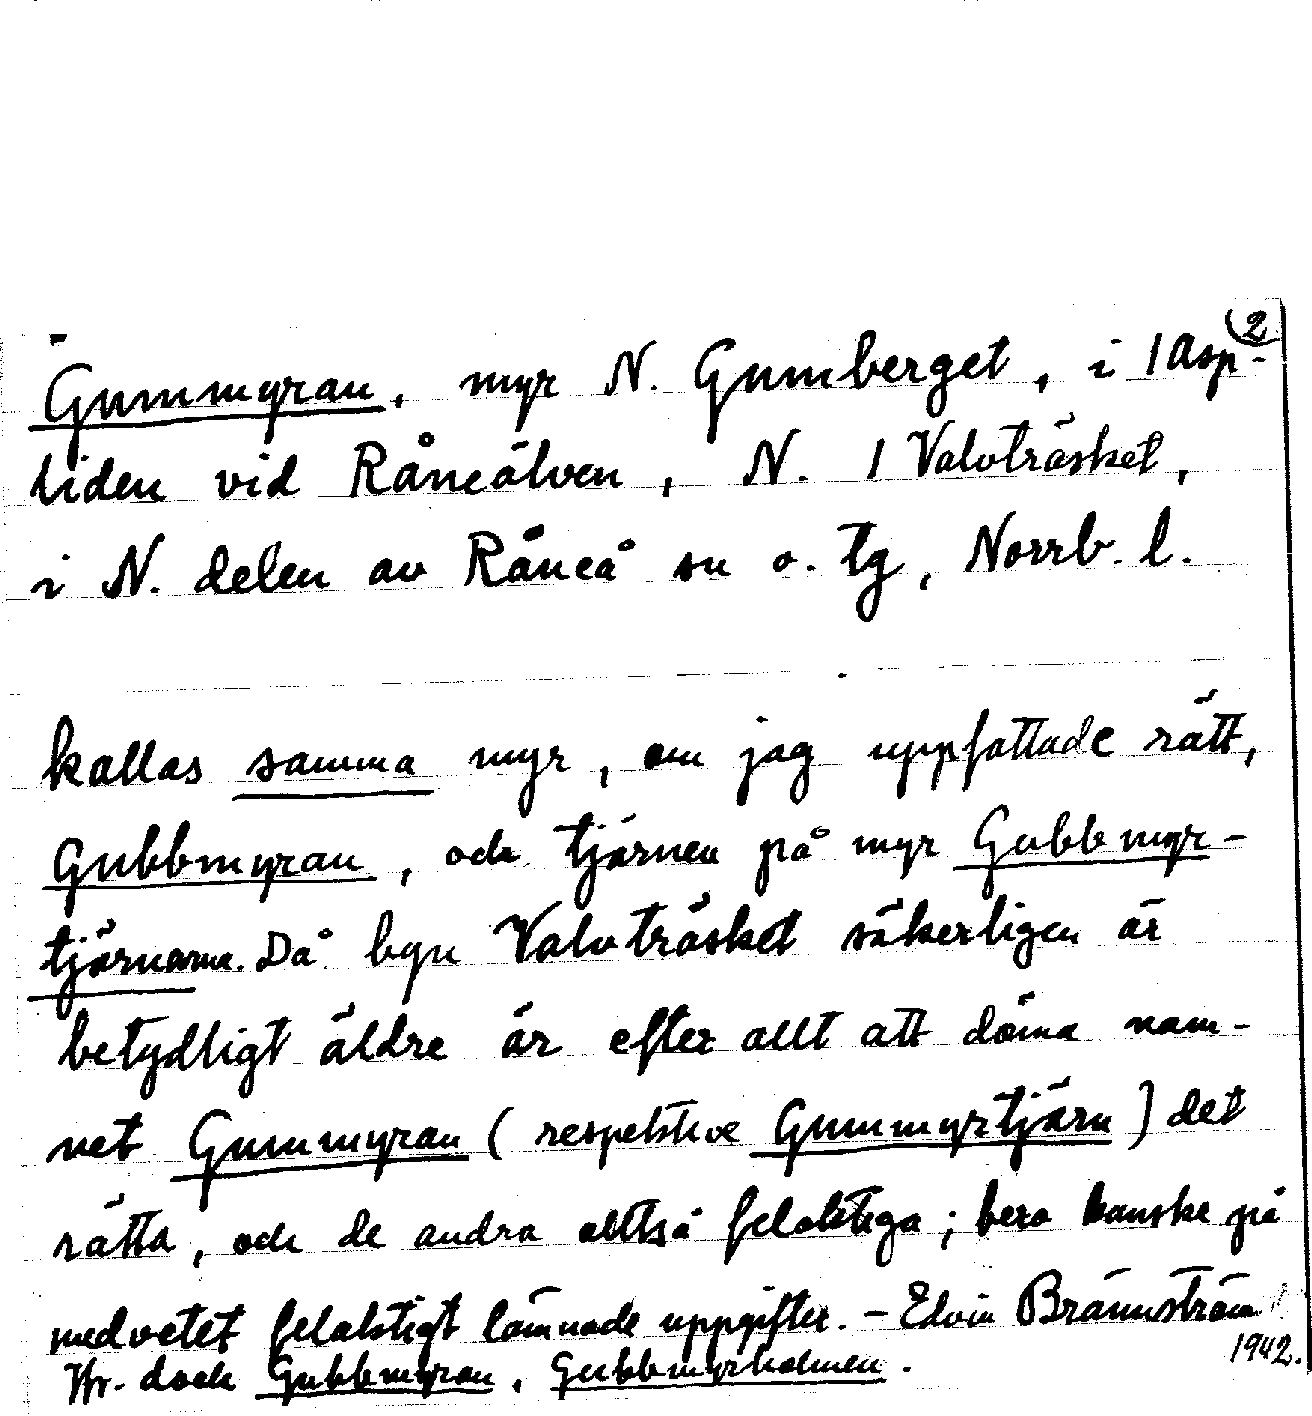 2
Gummyran, myr N. Gumberget, i /Asp-
liden vid Råneälven, N. / Valvträsket,
i N. delen av Råneå sn o. tg, Norrb. l.
kallas samma myr, om jag uppfattade rätt,
Gubbmyran, och tjärnen på myr Gubbmyr-
tjärnarna. Då byn Valvträsket säkerligen är
betydligt äldre är efter allt att döma nam-
net Gummyran (respektive Gummyrtjärn) det
rätta, och de andra alltså felaktiga; bero kanske på
medvetet felaktigt lämnade uppgifter. – Edvin Brännström
1942.
Jfr. dock Gubbmyran, Gubbmyrholmen.